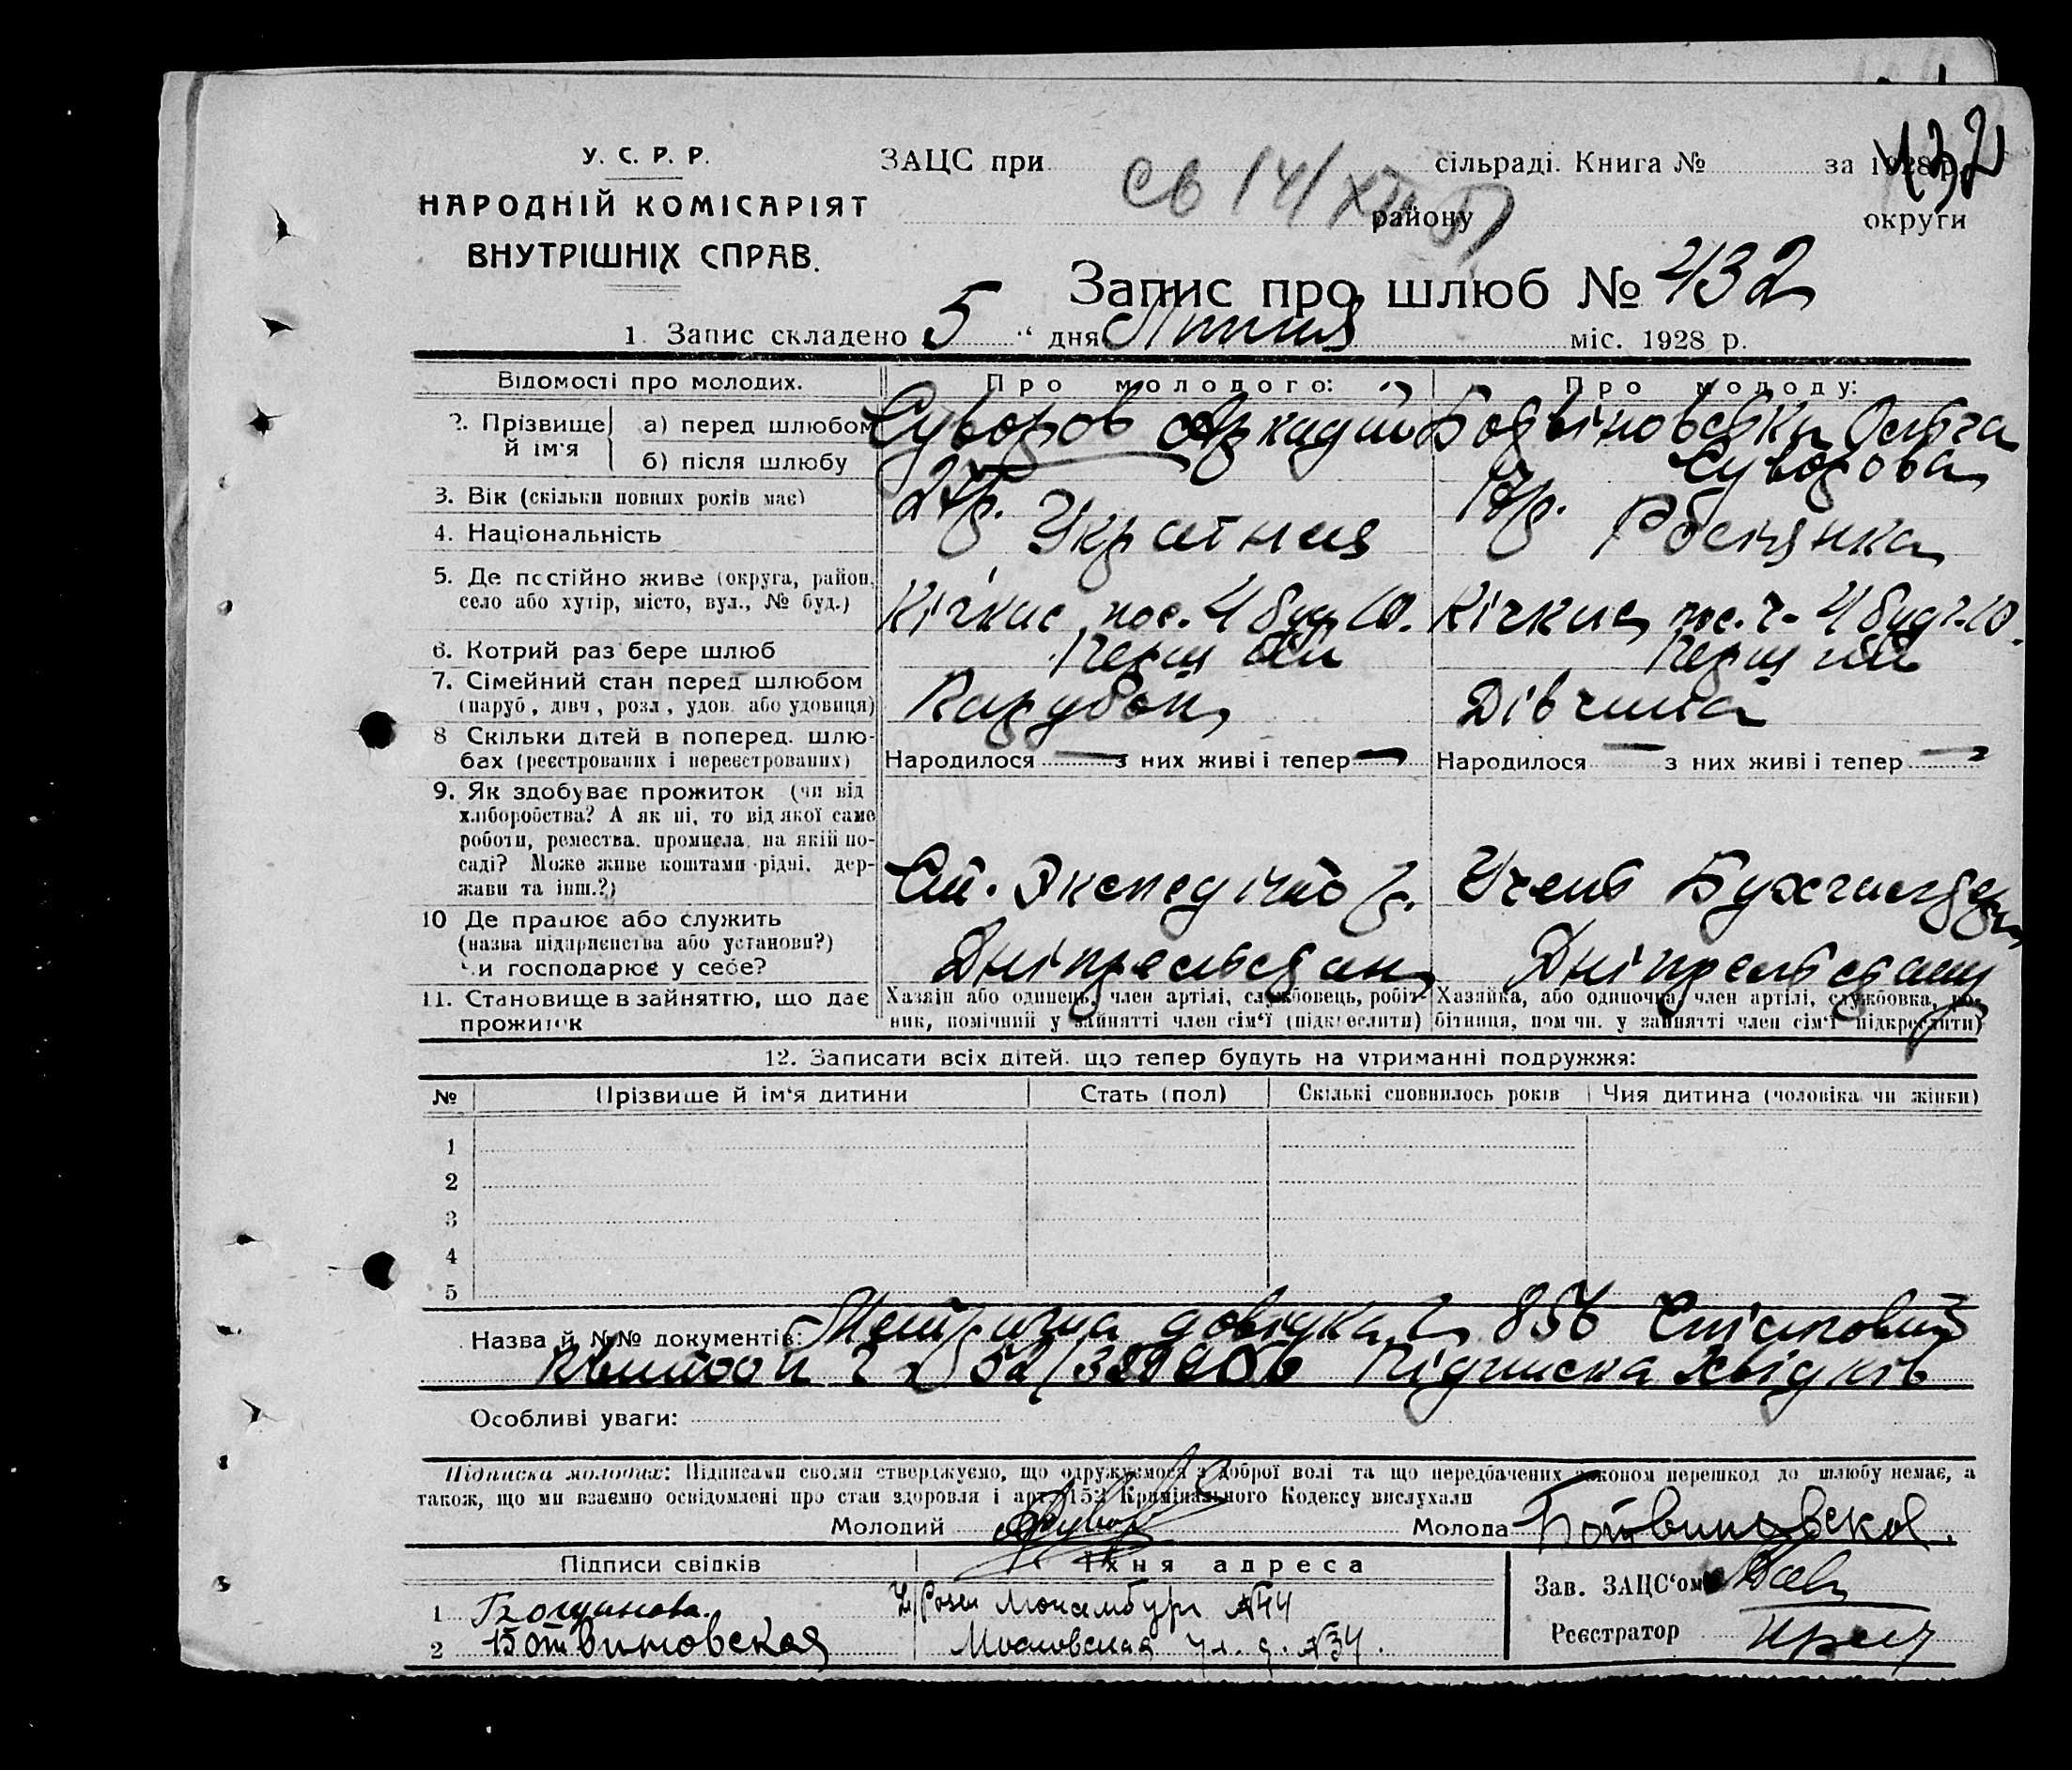 132
У. С. Р. Р.
НАРОДНІЙ КОМІСАРІЯТ
ВНУТРІШНІХ СПРАВ.
ЗАЦС при сільраді. Книга № за 1928 р.
району округи
св 141
Запис про шлюб № 432
1. Запис складено 5 " дня Липня міс. 1928 р.
Відомості про молодих. Про молодого: Про молоду:
2. Прізвище й ім'я
а) перед шлюбом Суворов Аркадий Бодвіновська Ольга
б) після шлюбу Суворова
3. Вік (скільки повних років має) 24 р. 17 р.
4. Національність Українця
5. Де постійно живе (округа, район, село або хутір, місто, вул., № буд.) Кічкас пос. 4 буд. 10. Кічкас, пос. ч- 4 буд ч-10.
6. Котрий раз бере шлюб Перший Перший
7. Сімейний стан перед шлюбом (паруб, дівч, розл, удов. або удовиця) Парубок Дівчина
8 Скільки дітей в поперед. шлюбах (реєстрованих і нереєстрованих) Народилося — з них живі і тепер — Народилося — з них живі і тепер —
9. Як здобуває прожиток (чи від хліборобства? А як ні, то від якої саме роботи, ремества, промисла, на якій посаді? Може живе коштами рідні, держави та інш.?) Ст. Экспедітор. Учень Бухгалтера
10 Де працює або служить (назва підприємства або установи?) Чи господарює у себе? Дніпрельстан Дніпрельстан
11. Становище в зайняттю, що дає прожиток Хазяїн або одинець, член артілі, службовець, робітник, помічний у зайнятті член сім'ї (підкреслити) Хазяйка, або одиночка, член артілі, службовка, робітниця, пом чн. у зайнятті член сім'ї підкреслити)
12. Записати всіх дітей. що тепер будуть на утриманні подружжя:
№ Прізвище й ім'я дитини Стать (пол) Скількі сповнилось років Чия дитина (чоловіка чи жінки)
1
2
3
4
5
Назва й №№ документів: Метрична довідка ч 856
Підписка свідків
Особливі уваги:
Підписка молодих: Підписами своїми стверджуємо, що одружуємося з доброї волі та що передбачених законом перешкод до шлюбу немає, а
також, що ми взаємно освідомлені про стан здоровля і арт. 152 Кримінального Кодексу вислухали
Молодий Суворо Молода Ботвиновская.
Підписи свідків Їхня адреса Зав. ЗАЦС'ом
1 Богданова. №44
2 Ботвиновская Московская ул. д. №34.
Реєстратор